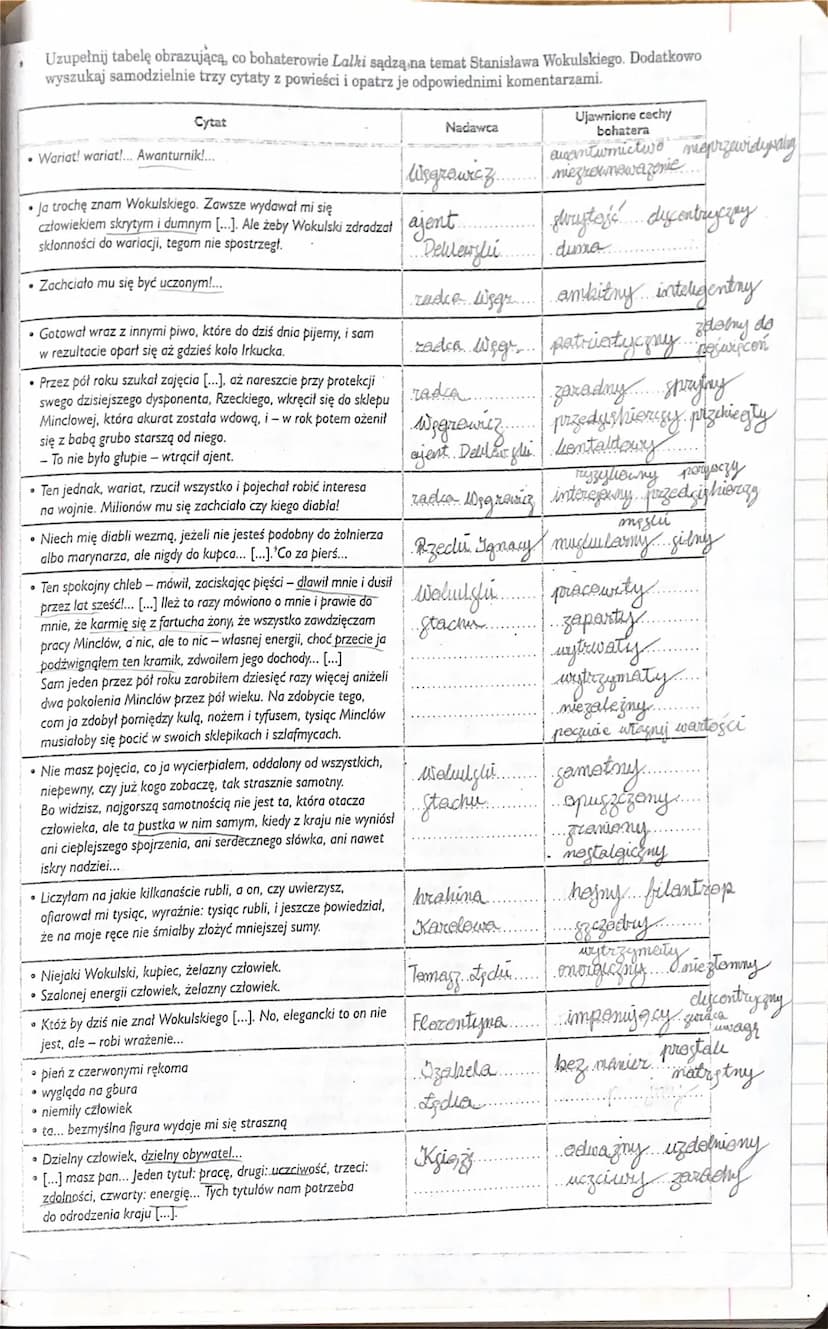 Uzupełnij tabelę obrazującą, co bohaterowie Lalki sądzą na temat Stanisława Wokulskiego. Dodatkowo
wyszukaj samodzielnie trzy cytaty z powieści i opatrz je odpowiednimi komentarzami.
Cytat
Nadawca
Ujawnione cechy
bohatera
• Wariat! wariat!... Awanturnik!...
Węgrowicz
awanturnictwo nieprzewidywalny
niezrównoważenie
• Ja trochę znam Wokulskiego. Zawsze wydawał mi się
człowiekiem skrytym i dumnym [...]. Ale żeby Wokulski zdradzał
skłonności do wariacji, tegom nie spostrzegł.
ajent
Deklewski
skrytość dyscentryczny
duma
• Zachciało mu się być uczonym!...
radca Węgr.
ambitny inteligentny
• Gotował wraz z innymi piwo, które do dziś dnia pijemy, i sam
w rezultacie oparł się aż gdzieś koło Irkucka.
radca Węgr.
patriotyczny zdolny do
poświęceń
• Przez pół roku szukał zajęcia [...], aż nareszcie przy protekcji
swego dzisiejszego dysponenta, Rzeckiego, wkręcił się do sklepu
Minclowej, która akurat została wdową, i – w rok potem ożenił
się z babą grubo starszą od niego.
– To nie było głupie – wtrącił ajent.
radca
Węgrowicz
ajent Deklewski
zaradny sprytny
przedsiębiorczy przebiegły
kontaktowy
• Ten jednak, wariat, rzucił wszystko i pojechał robić interesa
na wojnie. Milionów mu się zachciało czy kiego diabła!
radca Węgrowicz
ryzykowny porywczy
interesowny przedsiębiorczy
• Niech mię diabli wezmą, jeżeli nie jesteś podobny do żołnierza
albo marynarza, ale nigdy do kupca... [...]. Co za pierś...
Rzecki Ignacy
męski
muskularny silny
• Ten spokojny chleb – mówił, zaciskając pięści – dławił mnie i dusił
przez lat sześć!... [...] Ileż to razy mówiono o mnie i prawie do
mnie, że karmię się z fartucha żony, że wszystko zawdzięczam
pracy Minclów, a nic, ale to nic – własnej energii, choć przecie ja
podźwignąłem ten kramik, zdwoiłem jego dochody... [...]
Sam jeden przez pół roku zarobiłem dziesięć razy więcej aniżeli
dwa pokolenia Minclów przez pół wieku. Na zdobycie tego,
com ja zdobył pomiędzy kulą, nożem i tyfusem, tysiąc Minclów
musiałoby się pocić w swoich sklepikach i szlafmycach.
Wokulski
Stachu
pracowity
zaparty
wytrwały
wytrzymały
niezależny
poczucie własnej wartości
• Nie masz pojęcia, co ja wycierpiałem, oddalony od wszystkich,
niepewny, czy już kogo zobaczę, tak strasznie samotny.
Bo widzisz, najgorszą samotnością nie jest ta, która otacza
człowieka, ale ta pustka w nim samym, kiedy z kraju nie wyniósł
ani cieplejszego spojrzenia, ani serdecznego słówka, ani nawet
iskry nadziei...
Wokulski
Stachu
samotny
opuszczony
zraniony
nostalgiczny
• Liczyłam na jakie kilkanaście rubli, a on, czy uwierzysz,
ofiarował mi tysiąc, wyraźnie: tysiąc rubli, i jeszcze powiedział,
że na moje ręce nie śmiałby złożyć mniejszej sumy.
hrabina
Karolowa
hojny filantrop
szczodry
• Niejaki Wokulski, kupiec, żelazny człowiek.
• Szalonej energii człowiek, żelazny człowiek.
Tomasz Łęcki
wytrzymały
energiczny niezłomny
• Któż by dziś nie znał Wokulskiego [...]. No, elegancki to on nie
jest, ale – robi wrażenie...
Florentyna
dyscentryczny
imponujący zwraca
uwagę
• pień z czerwonymi rękoma
• wygląda na gbura
• niemiły człowiek
• ta... bezmyślna figura wydaje mi się straszną
Izabela
Łęcka
bez manier prostak
natrętny
• Dzielny człowiek, dzielny obywatel...
• [...] masz pan... Jeden tytuł: pracę, drugi: uczciwość, trzeci:
zdolności, czwarty: energię... Tych tytułów nam potrzeba
do odrodzenia kraju [...].
Książę
odważny uzdolniony
uczciwy zaradny